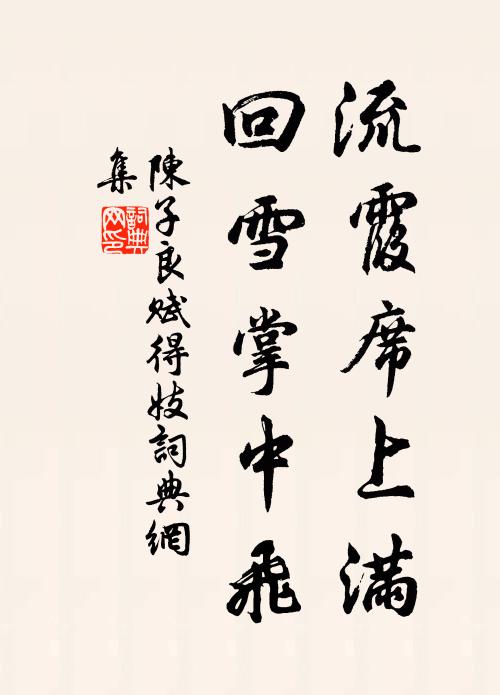 流霞席上滿
回雪掌中飛
陳子良賦得妓詞典網
集
詞典
网印